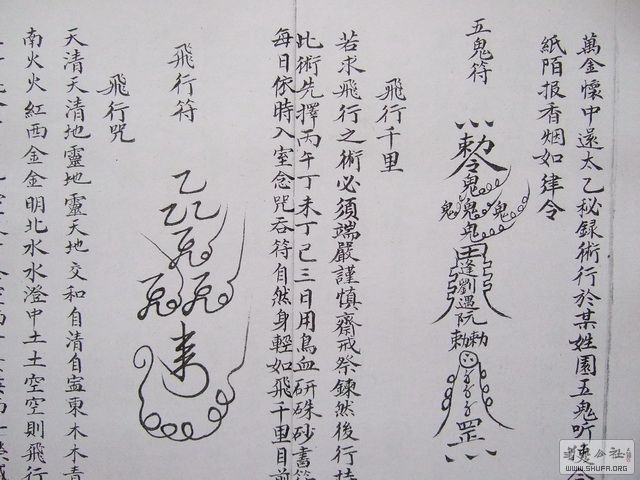 萬金懷中遂太乙秘錄術行於某姓園五鬼吩使令
紙陌报香烟如律令
五鬼符
敕令
鬼
鬼鬼鬼
鬼
田
逢劉遇阮
勅勅
罡
飛行千里
若求飛行之術必須端嚴謹慎齋戒祭鍊然後行持
此術先擇丙午丁未丁巳三日用鳥血研硃砂書符
每日依時入室念咒吞符自然身輕如飛千里目前
飛行符
飛行咒
天清天清地靈地靈天地交和自清自寍東木木青
南火火紅西金金明北水水澄中土土空空則飛行
書法公社
WWW.SHUFA.ORG